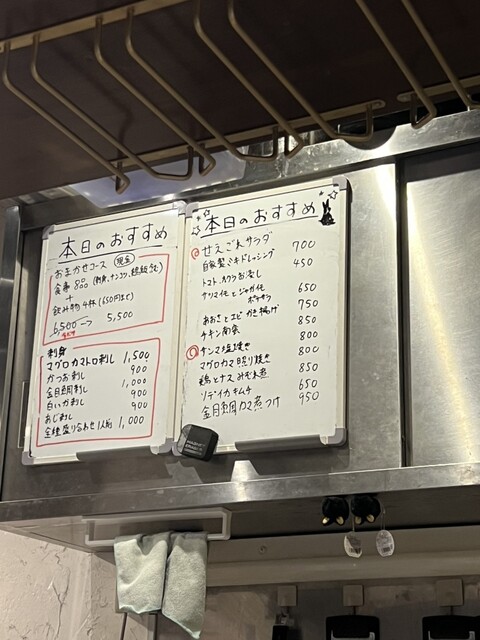 本日のおすすめ
おまかせコース 現金
食事 8品 (刺身、
+
飲み物 4杯 (650円まで)
6,500 → 5,500
刺身
マグロカマトロ刺し 1,500
かつお刺し 900
金目鯛刺し 1,000
白いか刺し 900
あじ刺し 900
全種盛り合わせ 1人前 1,000
本日のおすすめ
せえごれサラダ 700
自家製ミキドレッシング 450
トマト、オクラお浸し
サツマイモとジャガイモ 650
ポテサラ
あおさとエビ かき揚げ 750
チキン南蛮 850
サンマ塩焼き 800
マグロカマ照り焼き 800
鶏とナスみぞれ煮 850
ソデイカキムチ 650
金目鯛カマ煮つけ 950